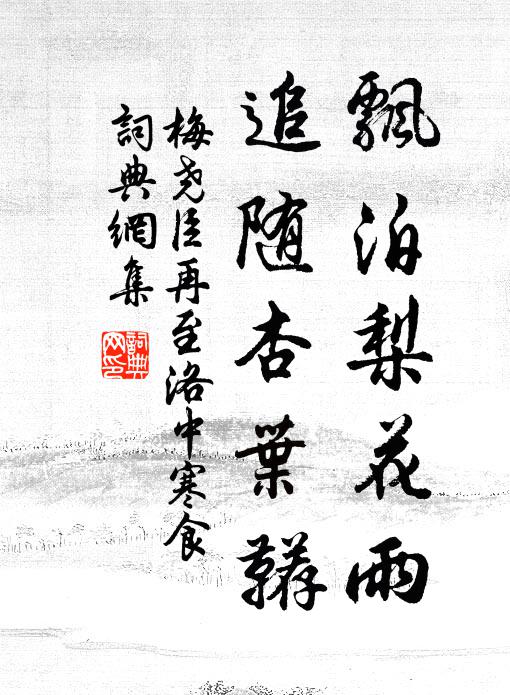 飄泊梨花雨
追随杏葉韉
梅尧臣再至洛中寒食
詞典網集
詞典
网印